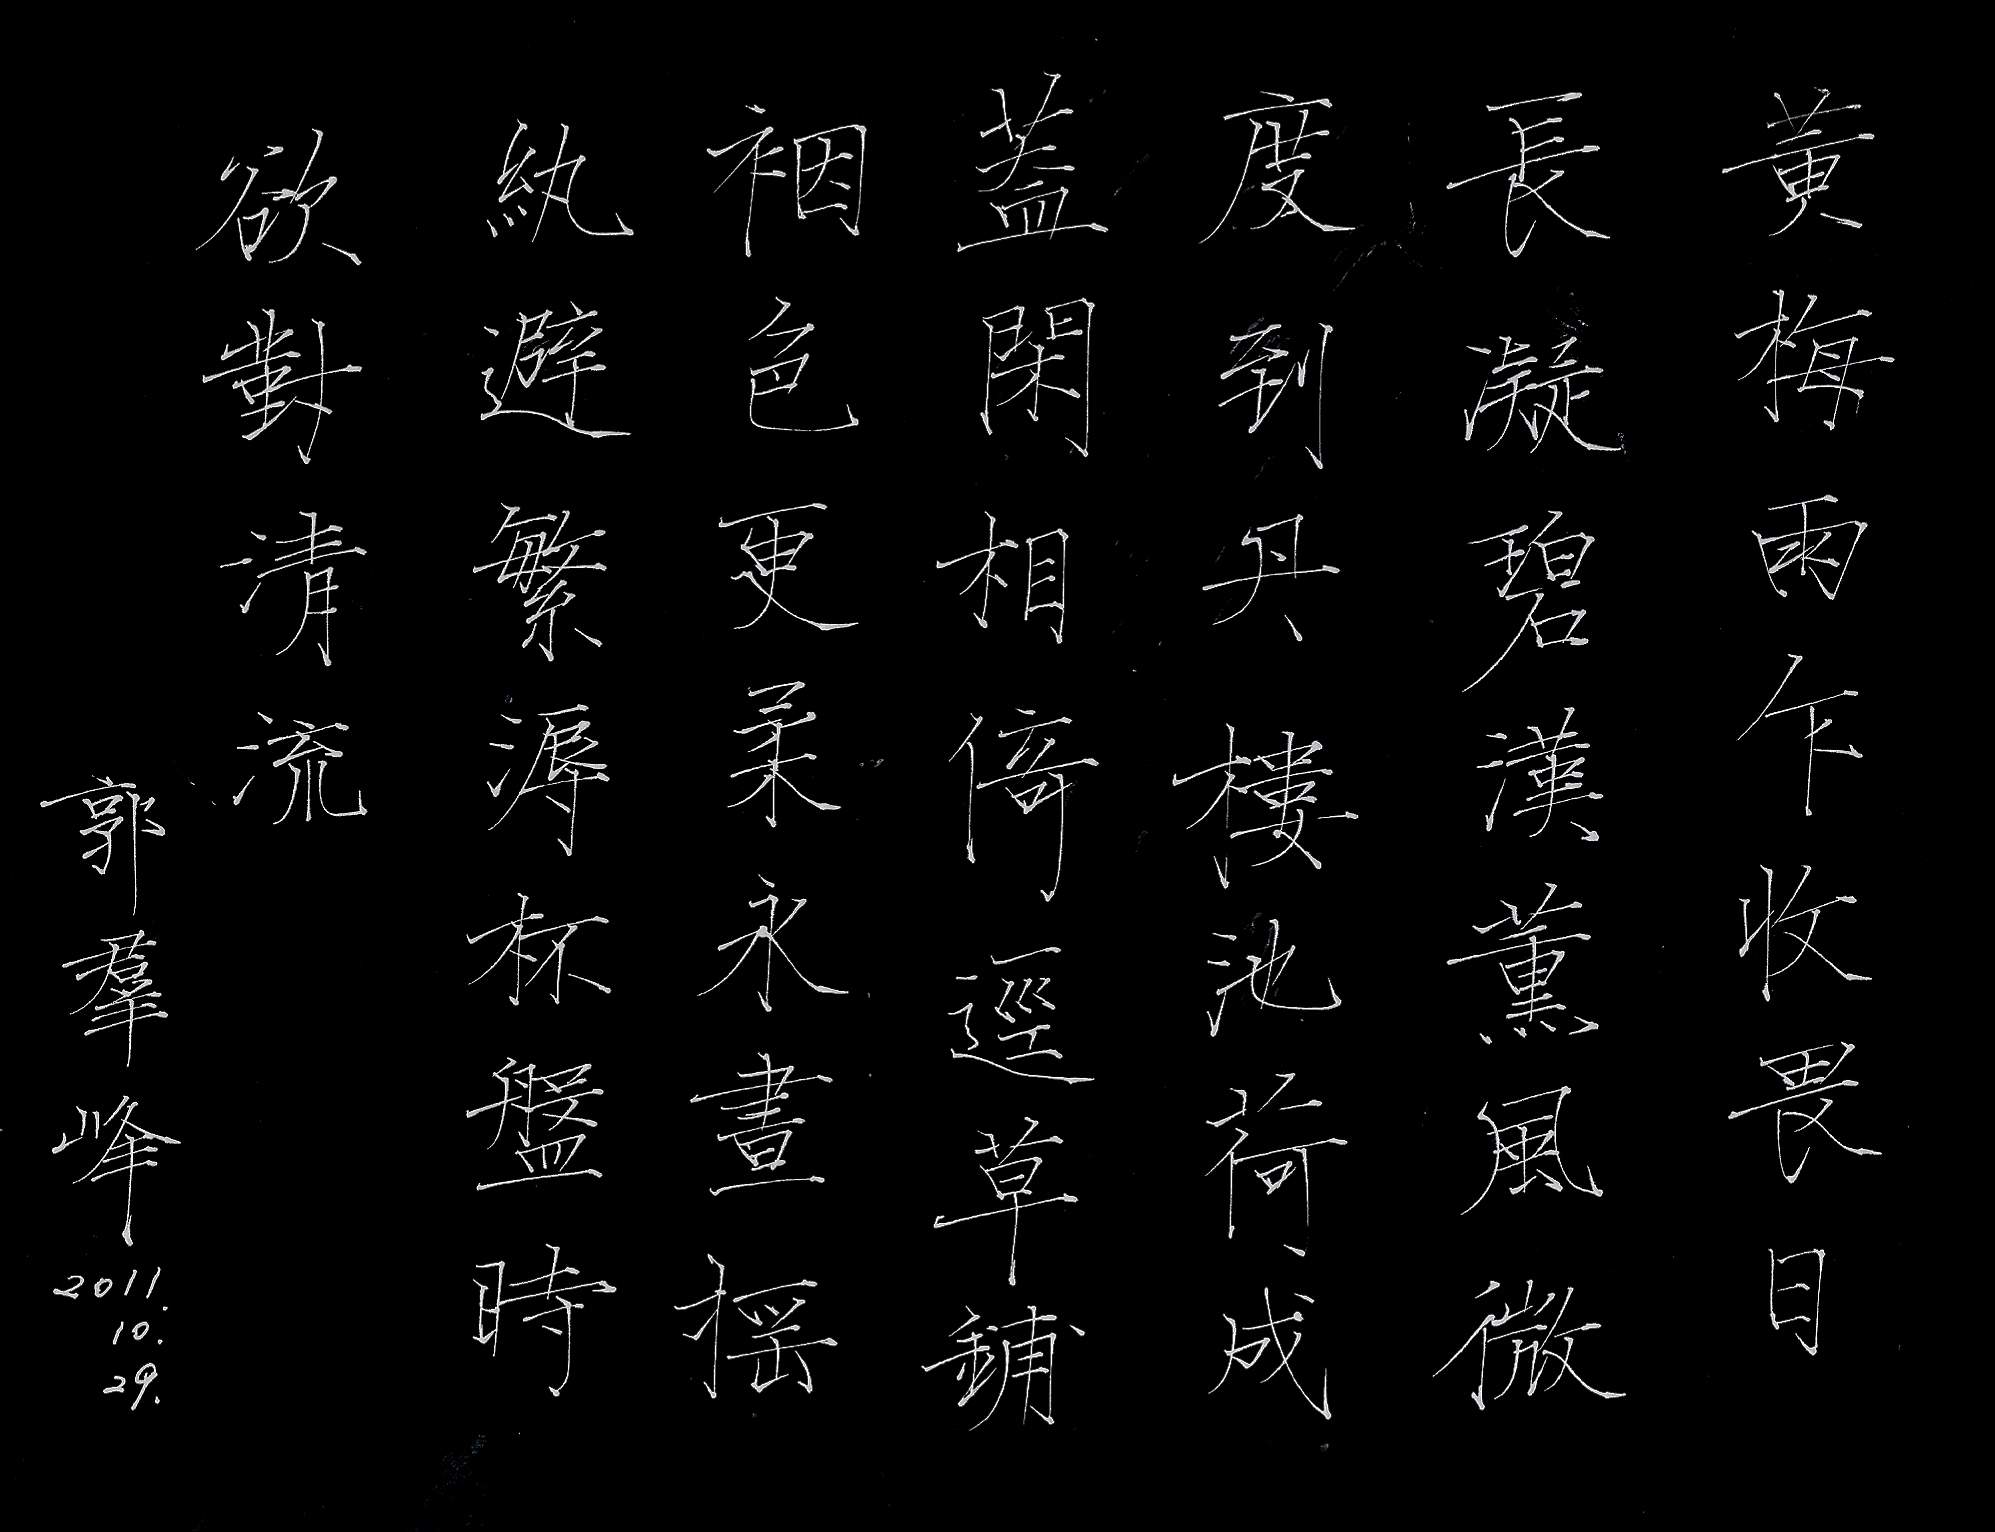 黃梅雨乍收畏日
長凝碧漢薰風微
度到丹樓池荷成
蓋閑相倚逕草鋪
裀色更柔永晝搖
紈避繁溽杯盤時
欲對清流
郭羣峰
2011.
10.
29.